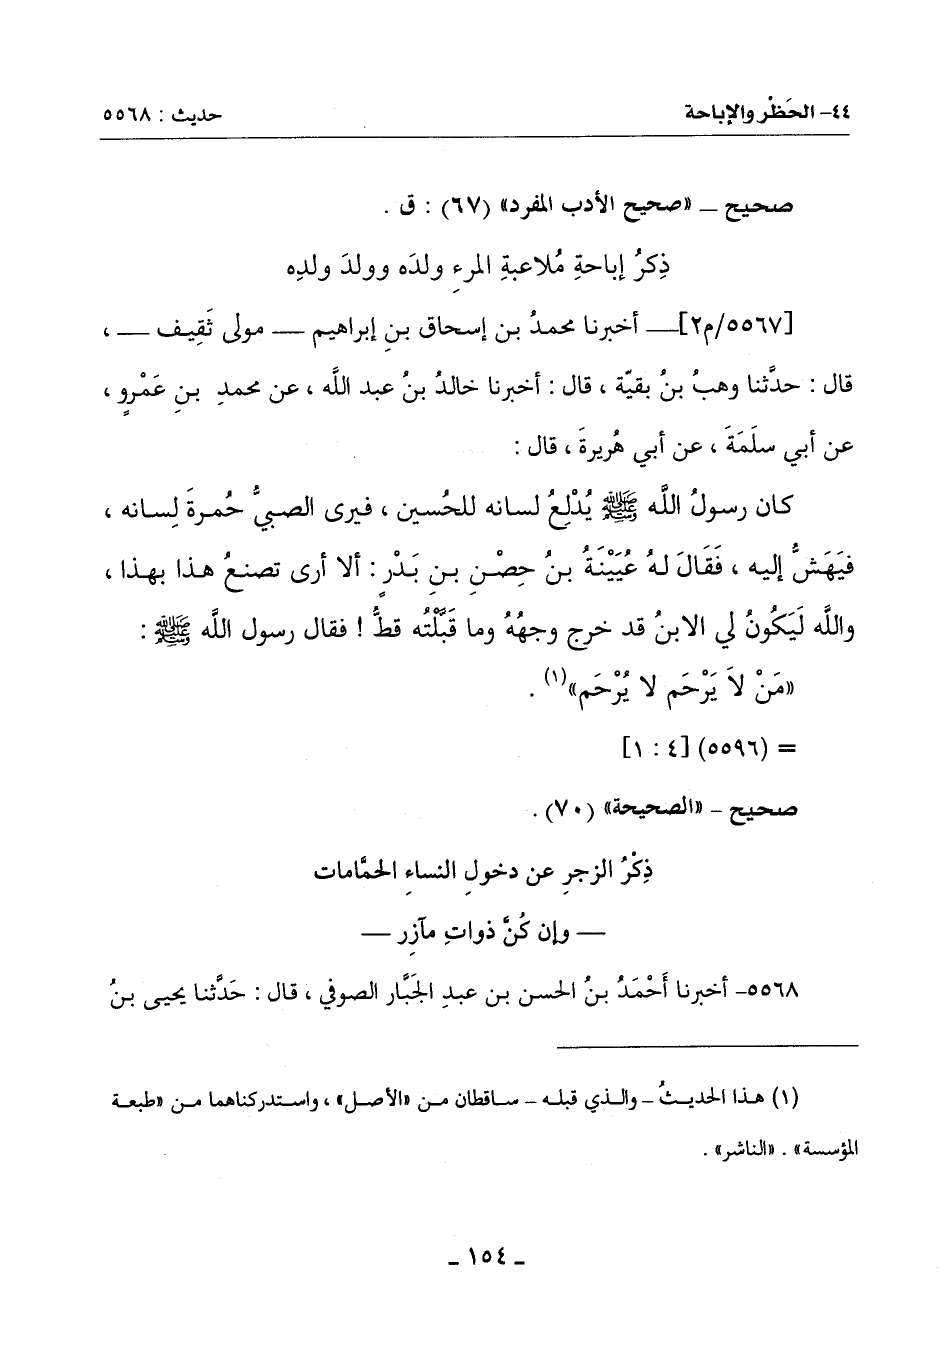 ٤٤- الحَظْر والإباحة
حديث : ٥٥٦٨
صحيح – «صحيح الأدب المفرد» (٦٧) : ق .
ذِكرُ إباحةِ مُلاعبةِ المرءِ ولدَه وولدَ ولدِه
[٥٥٦٧/م٢]— أخبرنا محمدُ بن إسحاق بنِ إبراهيم — مولى ثَقِيف — ،
قال : حدَّثنا وهبُ بنُ بقيّة ، قال : أخبرنا خالدُ بنُ عبد اللَّه ، عن محمدِ بنِ عَمْرٍو ،
عن أبي سلَمَةَ ، عن أبي هُريرةَ ، قال :
كان رسولُ اللَّه ﷺ يُدْلِعُ لسانه للحُسين ، فيرى الصبيُّ حُمرةَ لِسانه ،
فيَهَشُّ إليه ، فَقَالَ لهُ عُيَيْنَةُ بنُ حِصْنِ بنِ بَدْرٍ : ألا أرى تصنعُ هذا بهذا ،
واللَّه لَيَكُونُ لي الابنُ قد خرج وجهُهُ وما قَبَّلْتُه قطُّ ! فقال رسول اللَّه ﷺ :
«مَنْ لاَ يَرْحَم لا يُرْحَم»(١) .
= (٥٥٩٦) [٤ : ١]
صحيح – «الصحيحة» (٧٠) .
ذِكْرُ الزجرِ عن دخولِ النساءِ الحمَّامات
— وإن كُنَّ ذواتِ مآزِر —
٥٥٦٨- أخبرنا أَحْمَدُ بنُ الحسن بن عبدِ الجَبَّار الصوفي ، قال : حَدَّثنا يحيى بنُ
(١) هذا الحديثُ – والذي قبله – ساقطان من «الأصل» ، واستدركناهما من «طبعة
المؤسسة» . «الناشر» .
- ١٥٤ -